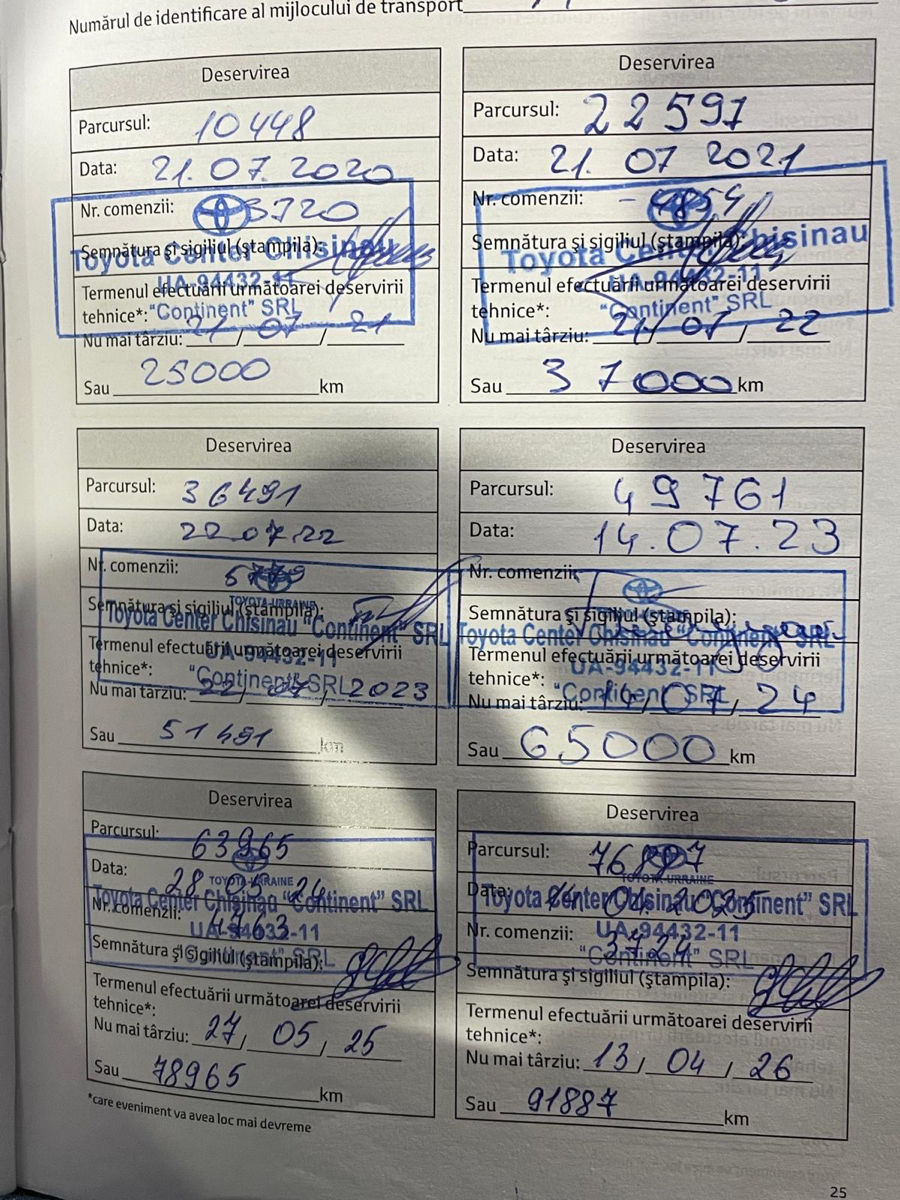 Numărul de identificare al mijlocului de transport
Deservirea
Parcursul: 10448
Data: 21.07.2020
Nr. comenzii: 3720
Semnătura şi sigiliul (ştampila):
Toyota Center Chisinau
UA-94432-11
Termenul efectuării următoarei deservirii
tehnice*:
"Continent" SRL
Nu mai târziu: 21/07/21
Sau 25000 km
Deservirea
Parcursul: 22591
Data: 21.07 2021
Nr. comenzii: 4854
Semnătura şi sigiliul (ştampila):
Toyota Center Chisinau
UA-94432-11
Termenul efectuării următoarei deservirii
tehnice*:
"Continent" SRL
Nu mai târziu: 21/07/22
Sau 37000 km
Deservirea
Parcursul: 36491
Data: 22.07.22
Nr. comenzii:
TOYOTA-UKRAINE
Semnătura şi sigiliul (ştampila):
Toyota Center Chisinau "Continent" SRL
Termenul efectuării următoarei deservirii
UA-94432-11
tehnice*:
"Continent" SRL
Nu mai târziu: 22/07/2023
Sau 51491 km
Deservirea
Parcursul: 49761
Data: 14.07.23
Nr. comenzii:
Semnătura şi sigiliul (ştampila):
Toyota Center Chisinau "Continent" SRL
Termenul efectuării următoarei deservirii
UA-94432-11
tehnice*:
"Continent" SRL
Nu mai târziu: 14/07/24
Sau 65000 km
Deservirea
Parcursul: 63965
Data: 28 05 24
TOYOTA-UKRAINE
Toyota Center Chisinau "Continent" SRL
Nr. comenzii:
UA-94432-11
Semnătura şi sigiliul (ştampila):
"Continent" SRL
Termenul efectuării următoarei deservirii
tehnice*:
Nu mai târziu: 27, 05, 25
Sau 78965 km
Deservirea
Parcursul: 76887
TOYOTA-UKRAINE
Data: 14 04.2025
Toyota Center Chisinau "Continent" SRL
Nr. comenzii: 3724
UA-94432-11
"Continent" SRL
Semnătura şi sigiliul (ştampila):
Termenul efectuării următoarei deservirii
tehnice*:
Nu mai târziu: 13, 04, 26
Sau 91887 km
*care eveniment va avea loc mai devreme
25